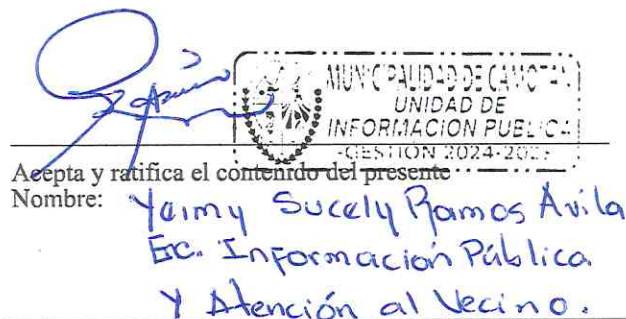 MUNICIPALIDAD DE CAMOTAN
UNIDAD DE
INFORMACION PUBLICA
-GESTION 2024-202
Acepta y ratifica el contenido del presente
Nombre: Yeimy Sucely Ramos Avila
Ec. Información Pública
Y Atención al Vecino.